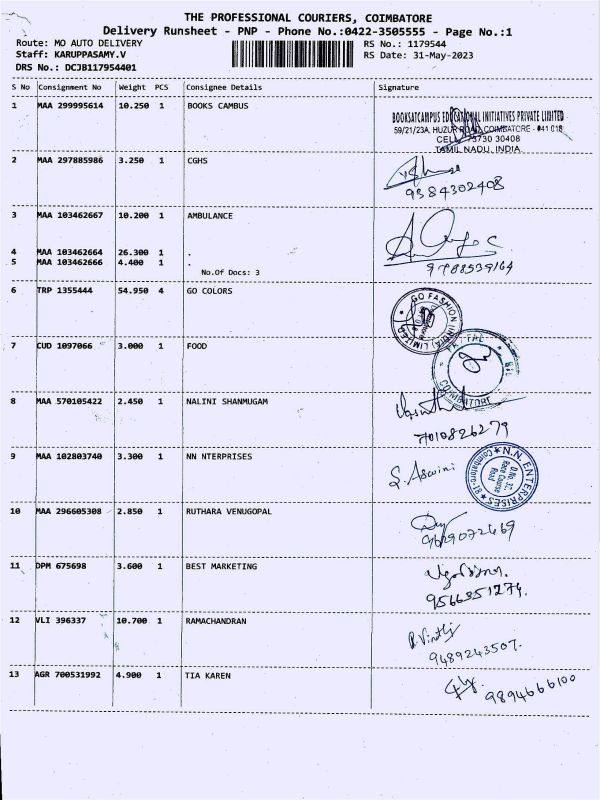 THE PROFESSIONAL COURIERS, COIMBATORE
Delivery Runsheet - PNP - Phone No.:0422-3505555 - Page No.:1
Route: MO AUTO DELIVERY RS No.: 1179544
Staff: KARUPPASAMY.V RS Date: 31-May-2023
DRS No.: DCJB117954401
S No Consignment No Weight PCS Consignee Details Signature
1 MAA 299995614 10.250 1 BOOKS CAMBUS
BOOKSATCAMPUS EDUCATIONAL INITIATIVES PRIVATE LIMITED
59/21/23A, HUZUR ROAD, COIMBATORE - 641 018
CELL: 73730 30408
TAMIL NADU, INDIA
2 MAA 297885986 3.250 1 CGHS
9384302408
3 MAA 103462667 10.200 1 AMBULANCE
4 MAA 103462664 26.300 1 .
5 MAA 103462666 4.400 1 .
No.Of Docs: 3
9788539164
6 TRP 1355444 54.950 4 GO COLORS
GO FASHION (INDIA) LIMITED
7 CUD 1097066 3.000 1 FOOD
COIMBATORE
8 MAA 570105422 2.450 1 NALINI SHANMUGAM
7010826279
9 MAA 102803740 3.300 1 NN NTERPRISES
S. Aswini
N.N. ENTERPRISES
Race Course
Road
Coimbatore-18
10 MAA 296605308 2.850 1 RUTHARA VENUGOPAL
9629072469
11 DPM 675698 3.600 1 BEST MARKETING
9566351274.
12 VLI 396337 10.700 1 RAMACHANDRAN
9489243507.
13 AGR 700531992 4.900 1 TIA KAREN
9894666100